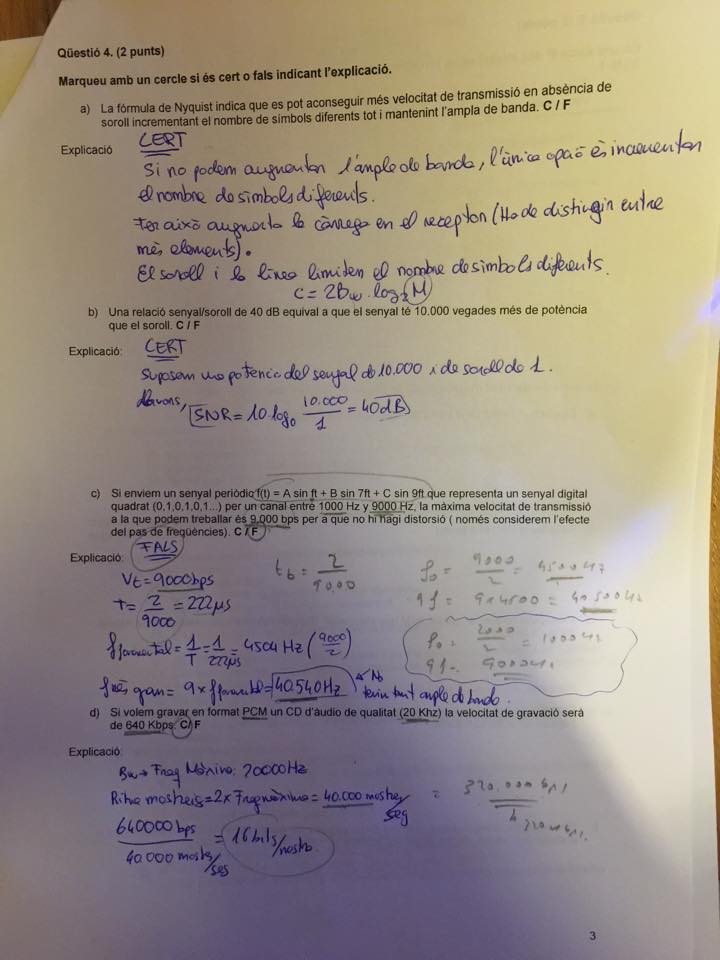 Qüestió 4. (2 punts)
Marqueu amb un cercle si és cert o fals indicant l'explicació.
a) La fórmula de Nyquist indica que es pot aconseguir més velocitat de transmissió en absència de
soroll incrementant el nombre de símbols diferents tot i mantenint l'ampla de banda. C / F
Explicació CERT
Si no podem augmentar l'ample de banda, l'única opció és incrementar
el nombre de símbols diferents.
Fer això augmenta la càrrega en el receptor (Ha de distingir entre
més elements).
El soroll i la línea limiten el nombre de símbols diferents.
C = 2Bw · log2 M
b) Una relació senyal/soroll de 40 dB equival a que el senyal té 10.000 vegades més de potència
que el soroll. C / F
Explicació: CERT
Suposem una potència del senyal de 10.000 i de soroll de 1.
llavors, SNR = 10·log0 10.000/1 = 40dB
c) Si enviem un senyal periòdic f(t) = A sin ft + B sin 7ft + C sin 9ft que representa un senyal digital
quadrat (0,1,0,1,0,1...) per un canal entre 1000 Hz y 9000 Hz, la màxima velocitat de transmissió
a la que podem treballar és 9.000 bps per a que no hi hagi distorsió ( només considerem l'efecte
del pas de freqüències). C / F
Explicació: FALS
Vt = 9000bps
tb = 2/9000
f0 = 9000/2 = 4500Hz
T = 2/9000 = 222µs
9f = 9x4500 = 40500Hz
ffonamental = 1/T = 1/222µs = 4504 Hz (9000/2)
f0 = 2000/2 = 1000Hz
9f = 9000Hz
f més gran = 9 x ffonamental = 40.540Hz No tenim tant ample de banda.
d) Si volem gravar en format PCM un CD d'àudio de qualitat (20 Khz) la velocitat de gravació serà
de 640 Kbps. C / F
Explicació:
Bw → Freq Màxima: 20000Hz
Ritme mostreig = 2 x Freq màxima = 40.000 mostres/seg = 320.000 bps
320 kbps
640000 bps / 40.000 mostres/seg = 16 bits/mostra.
3